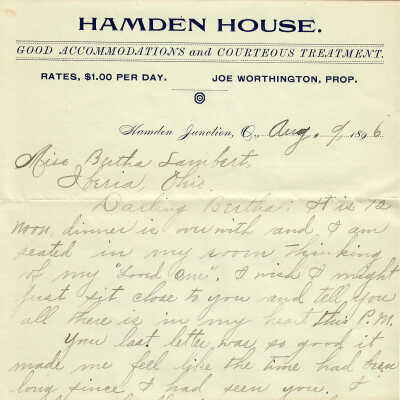 HAMDEN HOUSE.
GOOD ACCOMMODATIONS and COURTEOUS TREATMENT.
RATES, $1.00 PER DAY. JOE WORTHINGTON, PROP.
Hamden Junction, O., Aug. 9, 1896
Miss Bertha Lambert,
Iberia, Ohio.
Darling Bertha: It is 12
noon, dinner is over with and I am
seated in my room thinking
of my "loved one". I wish I might
just sit close to you and tell you
all there is in my heart this P.M.
You last letter was so good it
made me feel like the time had been
long since I had seen you. I